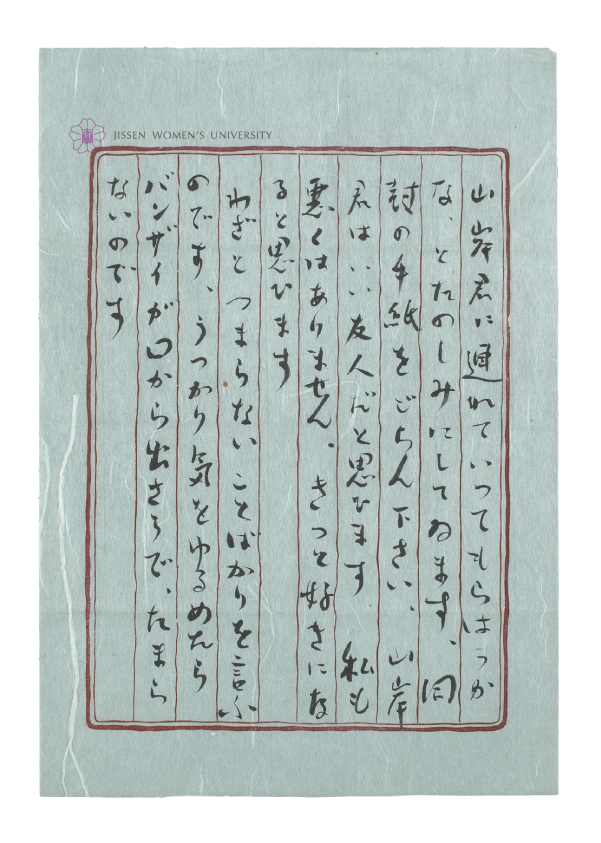 JISSEN WOMEN'S UNIVERSITY
山岸君に連れていつてもらはうか
な、とたのしみにしてゐます、同
封の手紙をごらん下さい、山岸
君はいい友人だと思ひます 私も
悪くはありません。きつと好きにな
ると思ひます
わざとつまらないことばかりを言ふ
のです、うつかり気をゆるめたら
バンザイが口から出さうで、たまら
ないのです